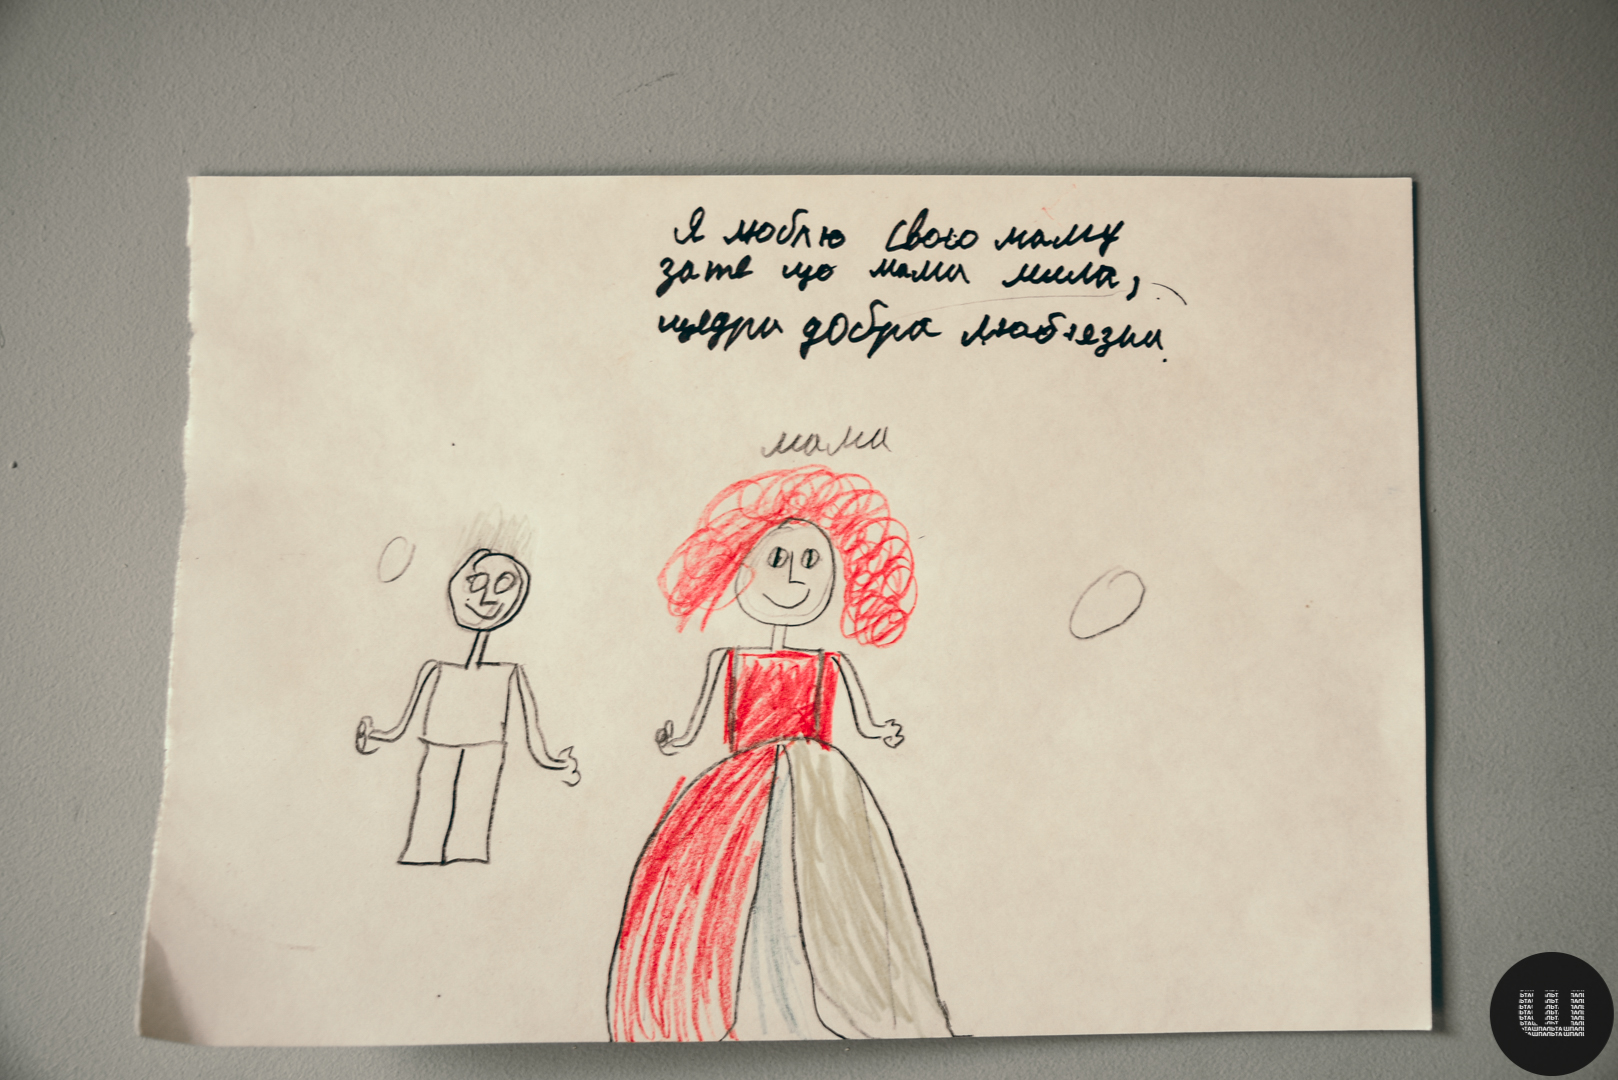 Я люблю свою маму
зате що мама мила,
щедра добра люб'язна.
мама